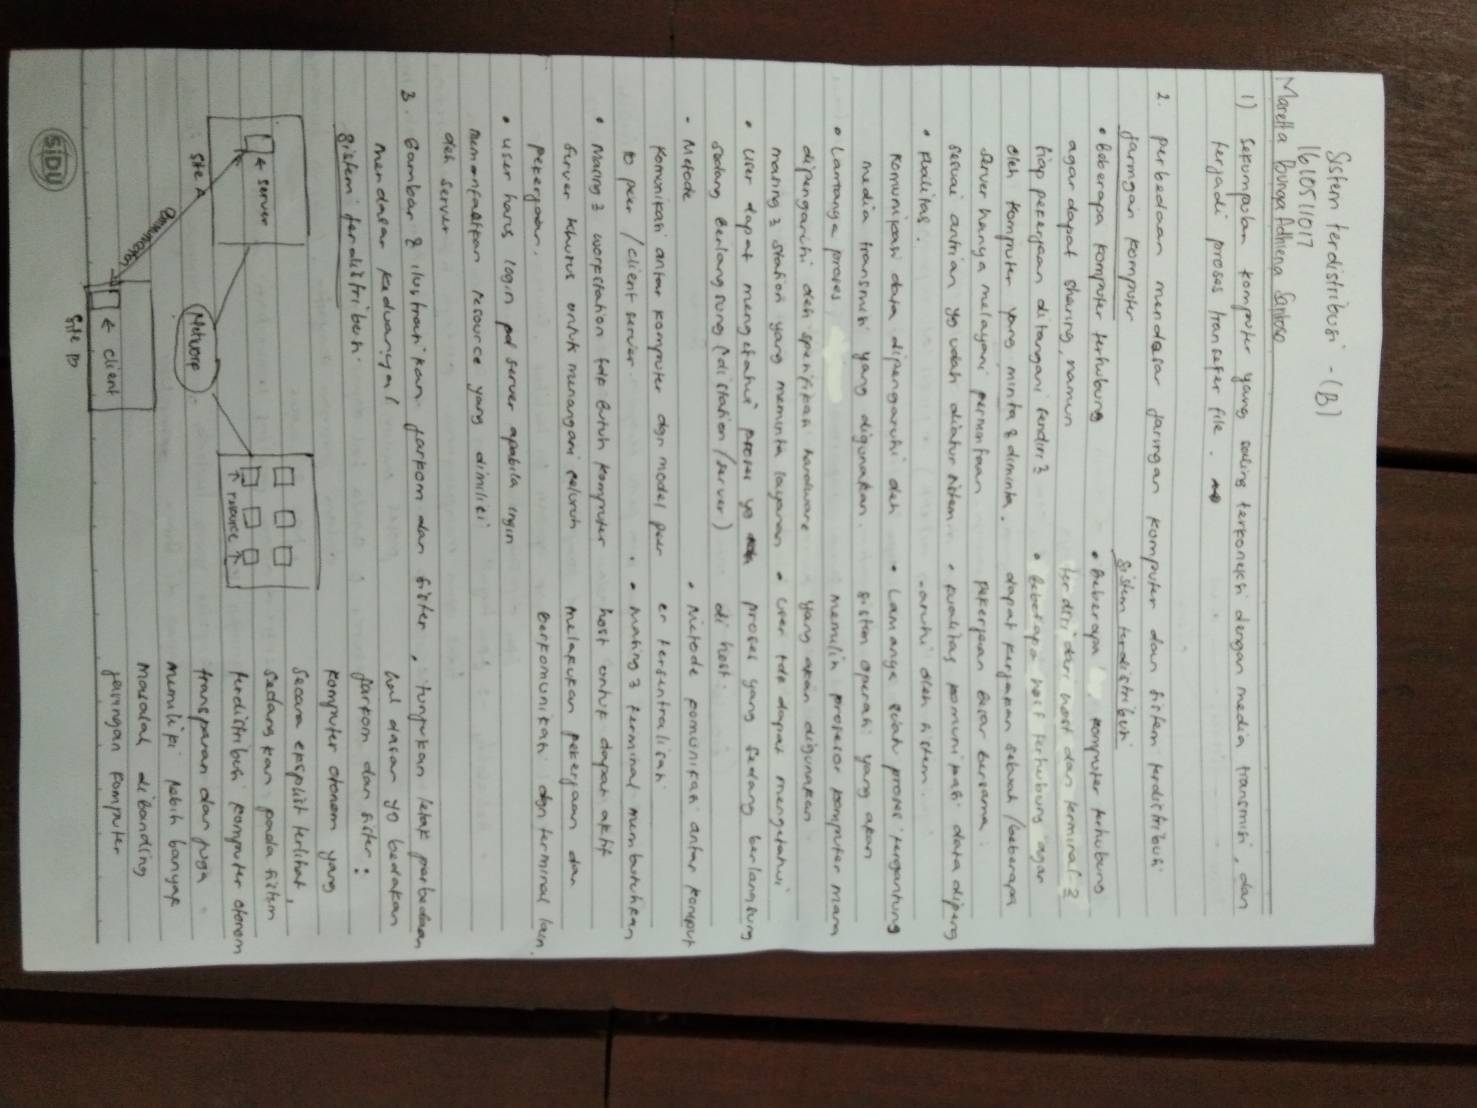 Sistem terdistribusi - (B)
1610511017
Maretta Bunga Adhiena Santoso
1) Sekumpulan komputer yang saling terkoneksi dengan media transmisi, dan
terjadi proses transefer file.
2. perbedaan mendasar jaringan komputer dan sistem terdistribusi
jaringan komputer
• Beberapa komputer terhubung
agar dapat sharing, namun
tiap pekerjaan ditangani sendiri2
oleh komputer yang minta & diminta.
Server hanya melayani permintaan
sesuai antrian yg udah diatur sistem.
• kualitas.
komunikasi data dipengaruhi oleh
media transmisi yang digunakan.
• Lamanya proses
dipengaruhi oleh spesifikasi hardware
masing2 station yang meminta layanan
• User dapat mengetahui proses yg
sedang berlangsung (di station/server)
- Metode
komunikasi antar komputer dgn model peer
to peer / client server.
• Masing2 workstation tdk butuh komputer
server khusus untuk menangani seluruh
pekerjaan.
• user harus login pd server apabila ingin
memanfaatkan resource yang dimiliki
oleh server
sistem terdistribusi
• Beberapa komputer terhubung
terdiri dari host dan terminal2
• Beberapa host terhubung agar
dapat kerjakan sebuah/beberapa
pekerjaan besar bersama.
• kualitas komunikasi data dipeng
-aruhi oleh sistem.
• Lamanya suatu proses tergantung
sistem operasi yang akan
memilih prosesor komputer mana
yang akan digunakan
• User tdk dapat mengetahui
proses yang sedang berlangsung
di host.
• Metode komunikasi antar komput
er tersentralisasi
• Masing2 terminal membutuhkan
host untuk dapat aktif
melakukan pekerjaan dan
berkomunikasi dgn terminal lain.
3. Gambar & ilustrasikan jarkom dan sister, tunjukan letak perbedaan
mendasar keduanya!
sistem terdistribusi.
← server
Site A
Network
↑ resource ↑
communication
← client
Site B
hal dasar yg bedakan
jarkom dan sister:
komputer otonom yang
secara eksplisit terlihat,
sedangkan pada sistem
terdistribusi komputer otonom
transparan dan juga
memiliki lebih banyak
masalah dibanding
jaringan komputer
SiDU